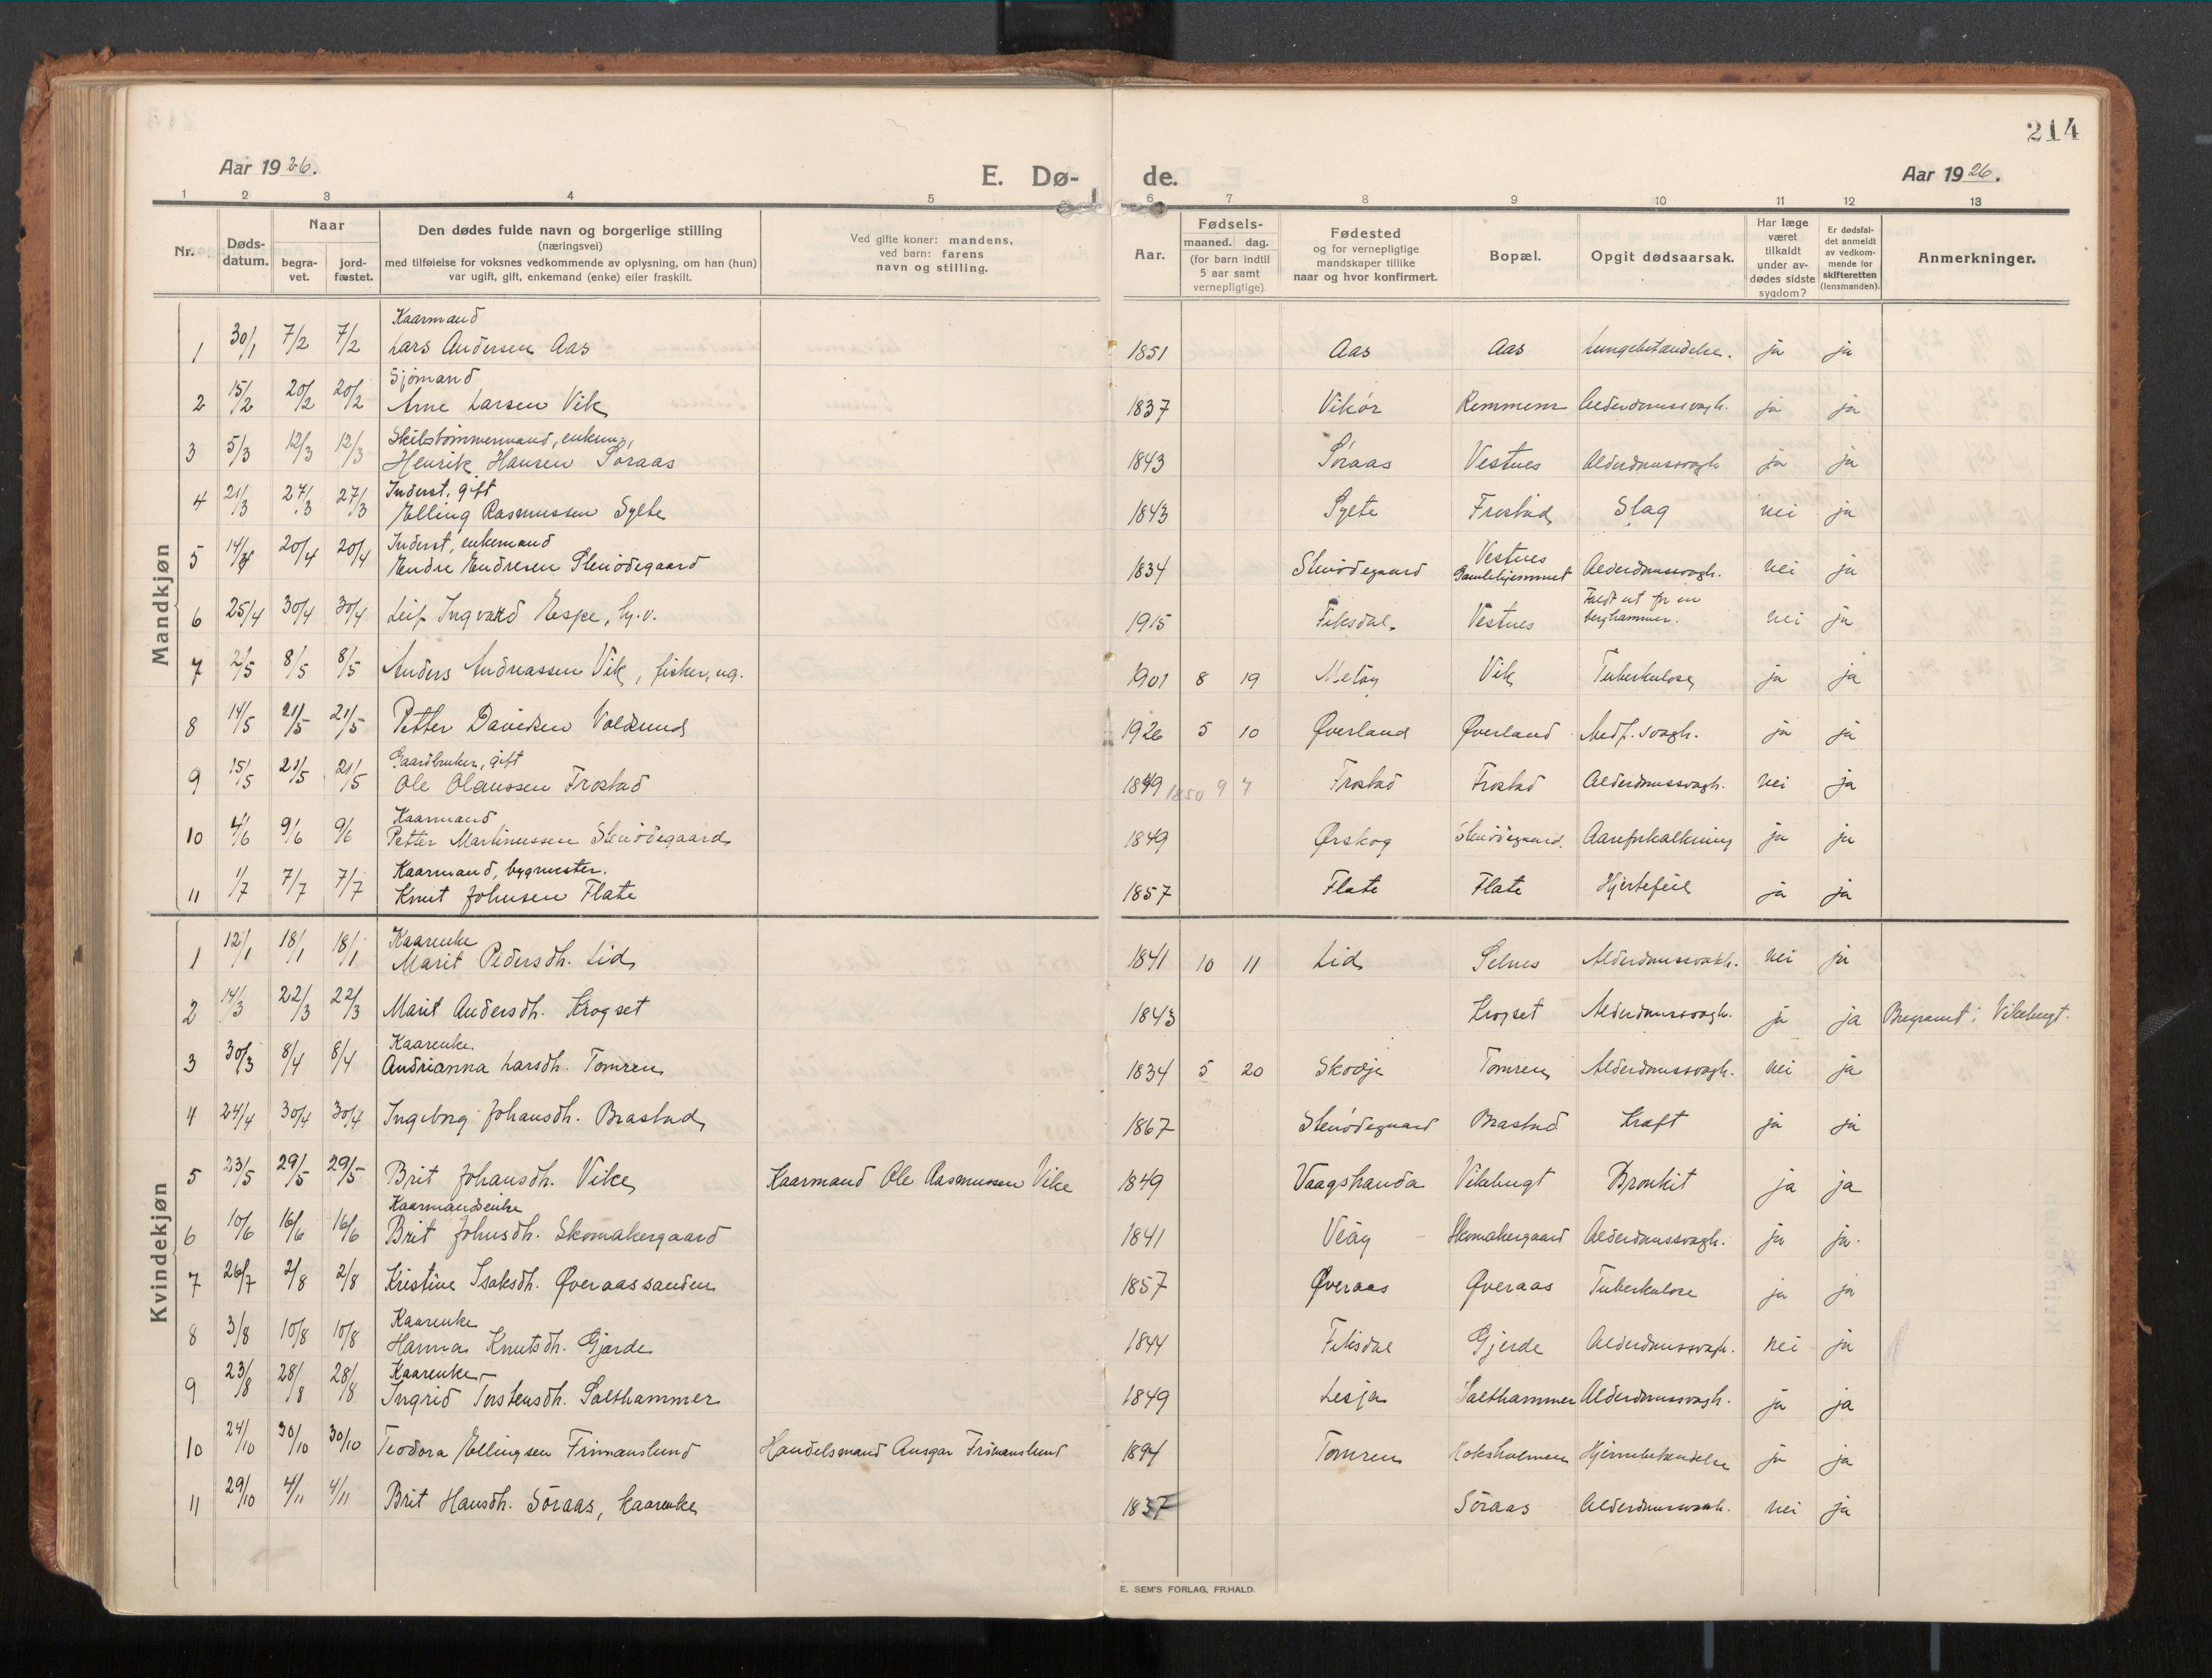 214
Aar 1926.
E. Dø-
de.
Aar 1926.
1 2 3 4 5 6 7 8 9 10 11 12 13
Nr.
Døds-
datum.
Naar
begra-
vet.
jord-
fæstet.
Den dødes fulde navn og borgerlige stilling
(næringsvei)
med tilføielse for voksnes vedkommende av oplysning, om han (hun)
var ugift, gift, enkemand (enke) eller fraskilt.
Ved gifte koner: mandens,
ved barn: farens
navn og stilling.
Aar.
Fødsels-
maaned. dag.
(for barn indtil
5 aar samt
vernepligtige)
Fødested
og for vernepligtige
mandskaper tillike
naar og hvor konfirmert.
Bopæl.
Opgit dødsaarsak.
Har læge
været
tilkaldt
under av-
dødes sidste
sygdom?
Er dødsfal-
det anmeldt
av vedkom-
mende for
skifteretten
(lensmanden).
Anmerkninger.
Mandkjøn
Kaarmand
1 30/1 7/2 7/2 Lars Andersen Aas 1851 Aas Aas Lungebetændelse. ja ja
Sjømand
2 15/2 20/2 20/2 Arne Larsen Vik 1837 Vikør Remmem Alderdomssvagh. ja ja
Skibstømmermand, enkem,
3 5/3 12/3 12/3 Henrik Hansen Søraas 1843 Søraas Vestnes Alderdomssvagh ja ja
Inderst, gift
4 21/3 27/3 27/3 Elling Rasmussen Sylte 1843 Sylte Frostad Slag nei ja
Inderst, enkemand
5 14/4 20/4 20/4 Endre Endresen Stenødegaard 1834 Stenødegaard Vestnes Gamlehjemmet Alderdomssvagh. nei ja
6 25/4 30/4 30/4 Leif Ingvard Espe, 1915 Fiksdal. Vestnes Faldt ut fr en berghammer. nei ja
7 2/5 8/5 8/5 Anders Andreassen Vik, fisker, ug. 1901 8 19 Vik Tuberkulose ja ja
8 14/5 21/5 21/5 Petter Davidsen Voldsund 1926 5 10 Øverland Øverland Medf. svagh. ja ja
Gaardbruker, gift
9 15/5 21/5 21/5 Ole Olaussen Frostad 1849 1850 9 7 Frostad Frostad Alderdomssvagh. nei ja
Kaarmand
10 4/6 9/6 9/6 Petter Martinussen Stenødegaard 1849 Ørskog Stenødegaard. Aareforkalkning ja ja
Kaarmand, bygmester.
11 1/7 7/7 7/7 Knut Johnsen Flate 1857 Flate Flate Hjertefeil ja ja
Kvindekjøn
Kaarenke
1 12/1 18/1 18/1 Marit Pedersdh. Lid 1841 10 11 Lid Selnes Alderdomssvakh. nei ja
2 14/3 22/3 22/3 Marit Andersdh. Krogset 1843 Krogset Alderdomssvagh. ja ja Begravet i Vikebugt.
Kaarenke
3 30/3 8/4 8/4 Andrianna Larsdh. Tomren 1834 5 20 Skodje Tomren Alderdomssvagh. nei ja
4 24/4 30/4 30/4 Ingeborg Johansdh. Brastad 1867 Stenødegaard Brastad Kræft ja ja
5 23/5 29/5 29/5 Brit Johansdh. Vike Kaarmand Ole Rasmussen Vike 1849 Vaagstranda Vikebugt Bronkit ja ja
Kaarmandsenke
6 10/6 16/6 16/6 Brit Johnsdh. Skomakergaard 1841 Veøy Skomakergaard Alderdomssvagh. ja ja.
7 26/7 2/8 2/8 Kristine Isaksdh. Øveraassanden 1857 Øveraas Øveraas Tuberkulose ja ja
Kaarenke
8 3/8 10/8 10/8 Hanna Knutsdh. Gjærde 1844 Fiksdal Gjerde Alderdomssvagh. nei ja
Kaarenke
9 23/8 28/8 28/8 Ingrid Torstensdh. Salthammer 1849 Lesja Salthammer Alderdomssvagh. ja ja
10 24/10 30/10 30/10 Teodora Ellingsen Frimanslund Handelsmand Ansgar Frimanslund 1894 Tomren Koksholmen Hjernebetændelse ja ja
11 29/10 4/11 4/11 Brit Hansdh. Søraas, kaarenke 1837 Søraas Alderdomssvakh. nei ja
E. SEM'S FORLAG. FR.HALD.